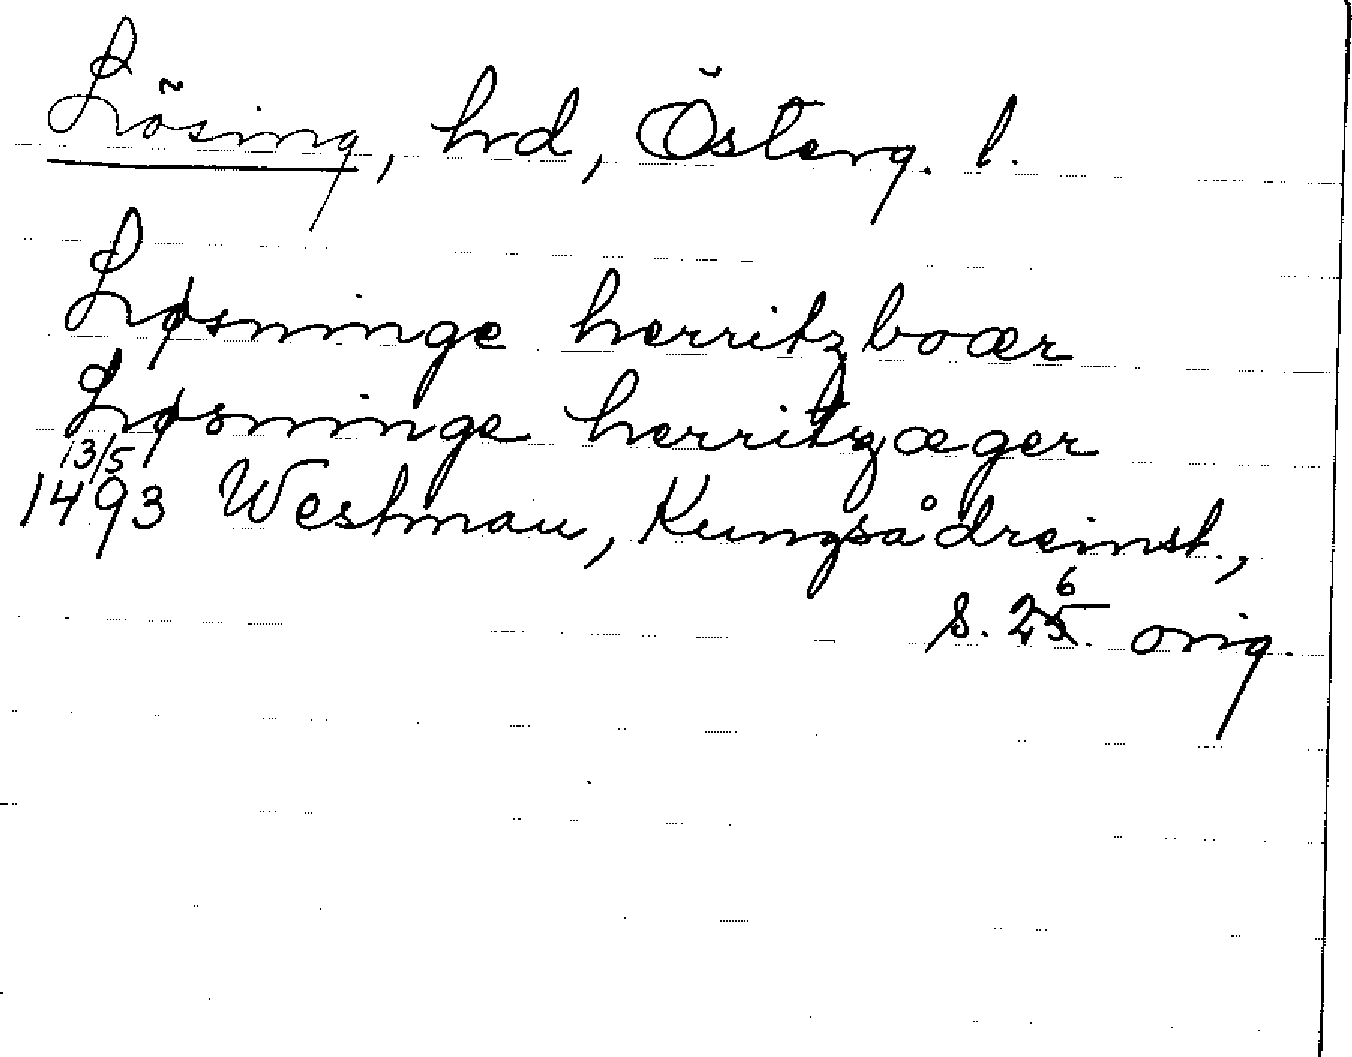 Lösing, hrd, Österg. l.
Løsninge herritzboær
Løsninge herritzæger
13/5
1493 Westman, Kungsådreinst.,
s. 26 orig.